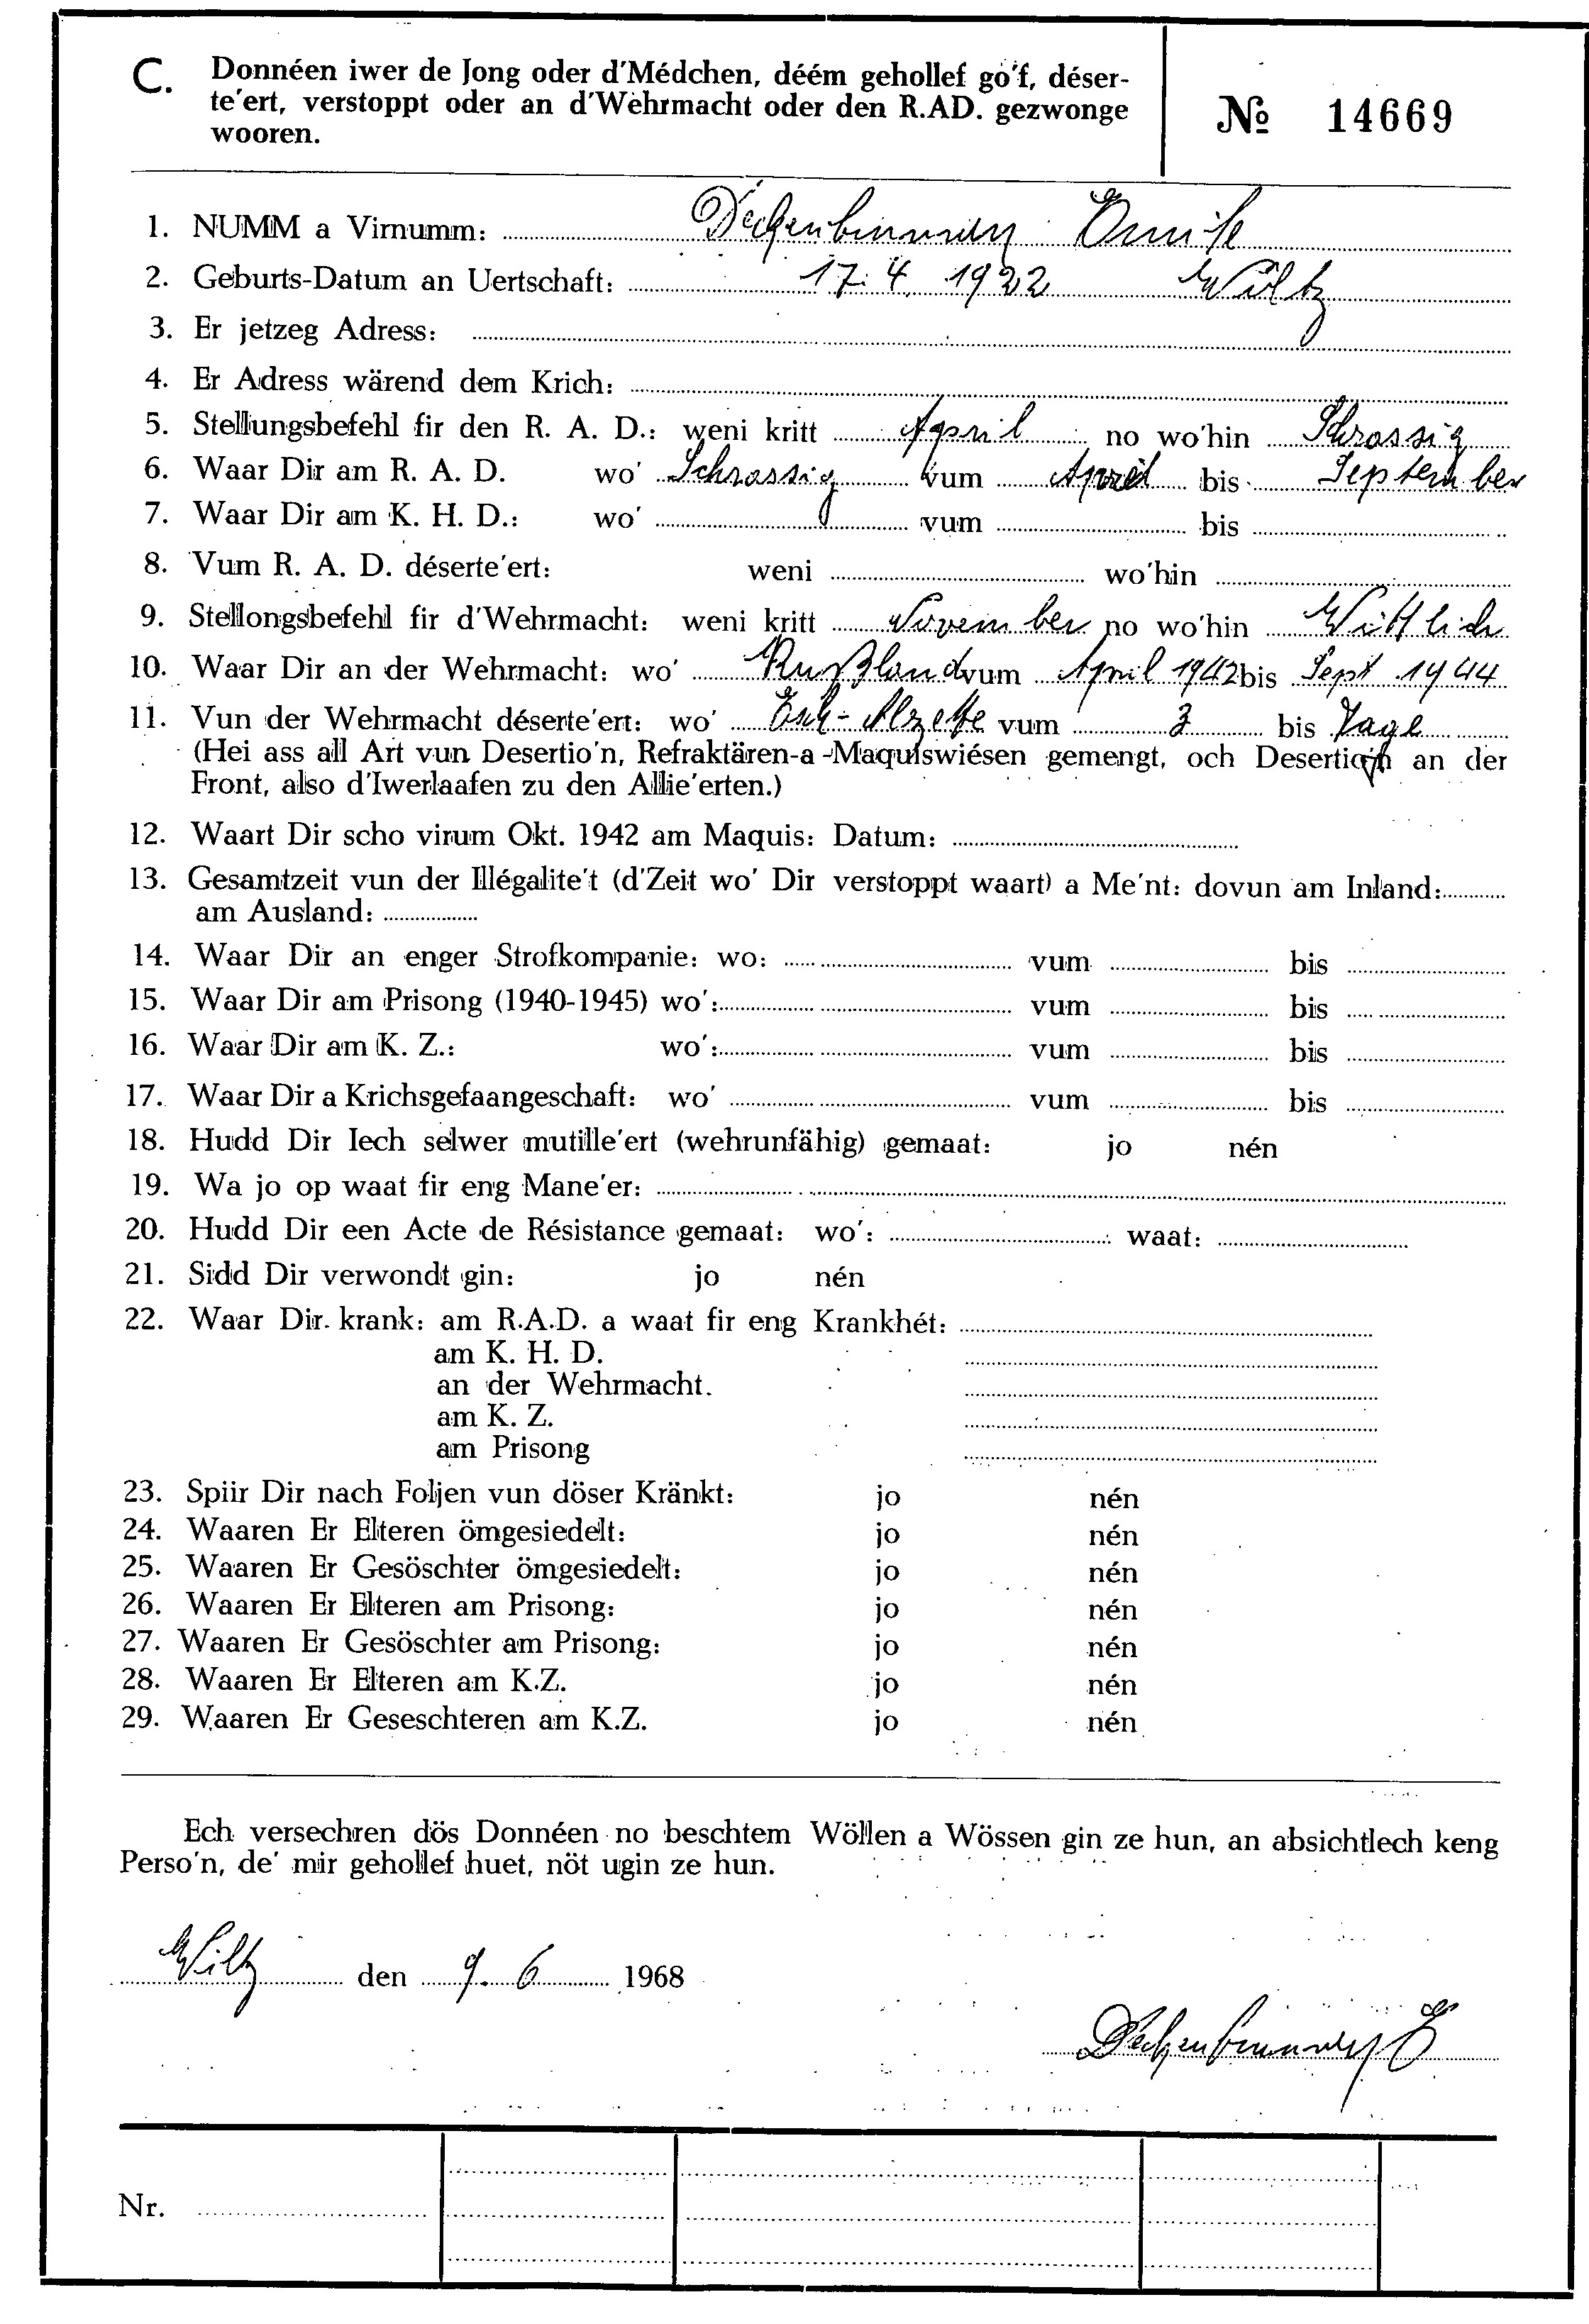 C. Donnéen iwer de Jong oder d'Médchen, déém gehollef go'f, déser-
te'ert, verstoppt oder an d'Wehrmacht oder den R.AD. gezwonge
wooren.
№ 14669
1. NUMM a Virnumm: Emile
2. Geburts-Datum an Uertschaft: 17. 4. 1922 Wiltz
3. Er jetzeg Adress:
4. Er Adress wärend dem Krich:
5. Stellungsbefehl fir den R. A. D.: weni kritt April no wo'hin Schrassig
6. Waar Dir am R. A. D. wo' Schrassig vum April bis September
7. Waar Dir am K. H. D.: wo' vum bis
8. Vum R. A. D. déserte'ert: weni wo'hin
9. Stellongsbefehl fir d'Wehrmacht: weni kritt November no wo'hin Wittlich
10. Waar Dir an der Wehrmacht: wo' Rußland vum April 1942 bis Sept 1944
11. Vun der Wehrmacht déserte'ert: wo' Esch-Alzette vum 3 bis Tage
(Hei ass all Art vun Desertio'n, Refraktären-a-Maquiswiésen gemengt, och Desertio'n an der
Front, also d'Iwerlaafen zu den Allie'erten.)
12. Waart Dir scho virum Okt. 1942 am Maquis: Datum:
13. Gesamtzeit vun der Illégalite't (d'Zeit wo' Dir verstoppt waart) a Me'nt: dovun am Inland:
am Ausland:
14. Waar Dir an enger Strofkompanie: wo: vum bis
15. Waar Dir am Prisong (1940-1945) wo': vum bis
16. Waar Dir am K. Z.: wo': vum bis
17. Waar Dir a Krichsgefaangeschaft: wo' vum bis
18. Hudd Dir Iech selwer mutille'ert (wehrunfähig) gemaat: jo nén
19. Wa jo op waat fir eng Mane'er:
20. Hudd Dir een Acte de Résistance gemaat: wo': waat:
21. Sidd Dir verwondt gin: jo nén
22. Waar Dir krank: am R.A.D. a waat fir eng Krankhét:
am K. H. D.
an der Wehrmacht.
am K. Z.
am Prisong
23. Spiir Dir nach Foljen vun döser Kränkt: jo nén
24. Waaren Er Elteren ömgesiedelt: jo nén
25. Waaren Er Gesöschter ömgesiedelt: jo nén
26. Waaren Er Elteren am Prisong: jo nén
27. Waaren Er Gesöschter am Prisong: jo nén
28. Waaren Er Elteren am K.Z. jo nén
29. Waaren Er Geseschteren am K.Z. jo nén
Ech versechren dös Donnéen no beschtem Wöllen a Wössen gin ze hun, an absichtlech keng
Perso'n, de' mir gehollef huet, nöt ugin ze hun.
Wiltz den 9. 6 1968
Nr.